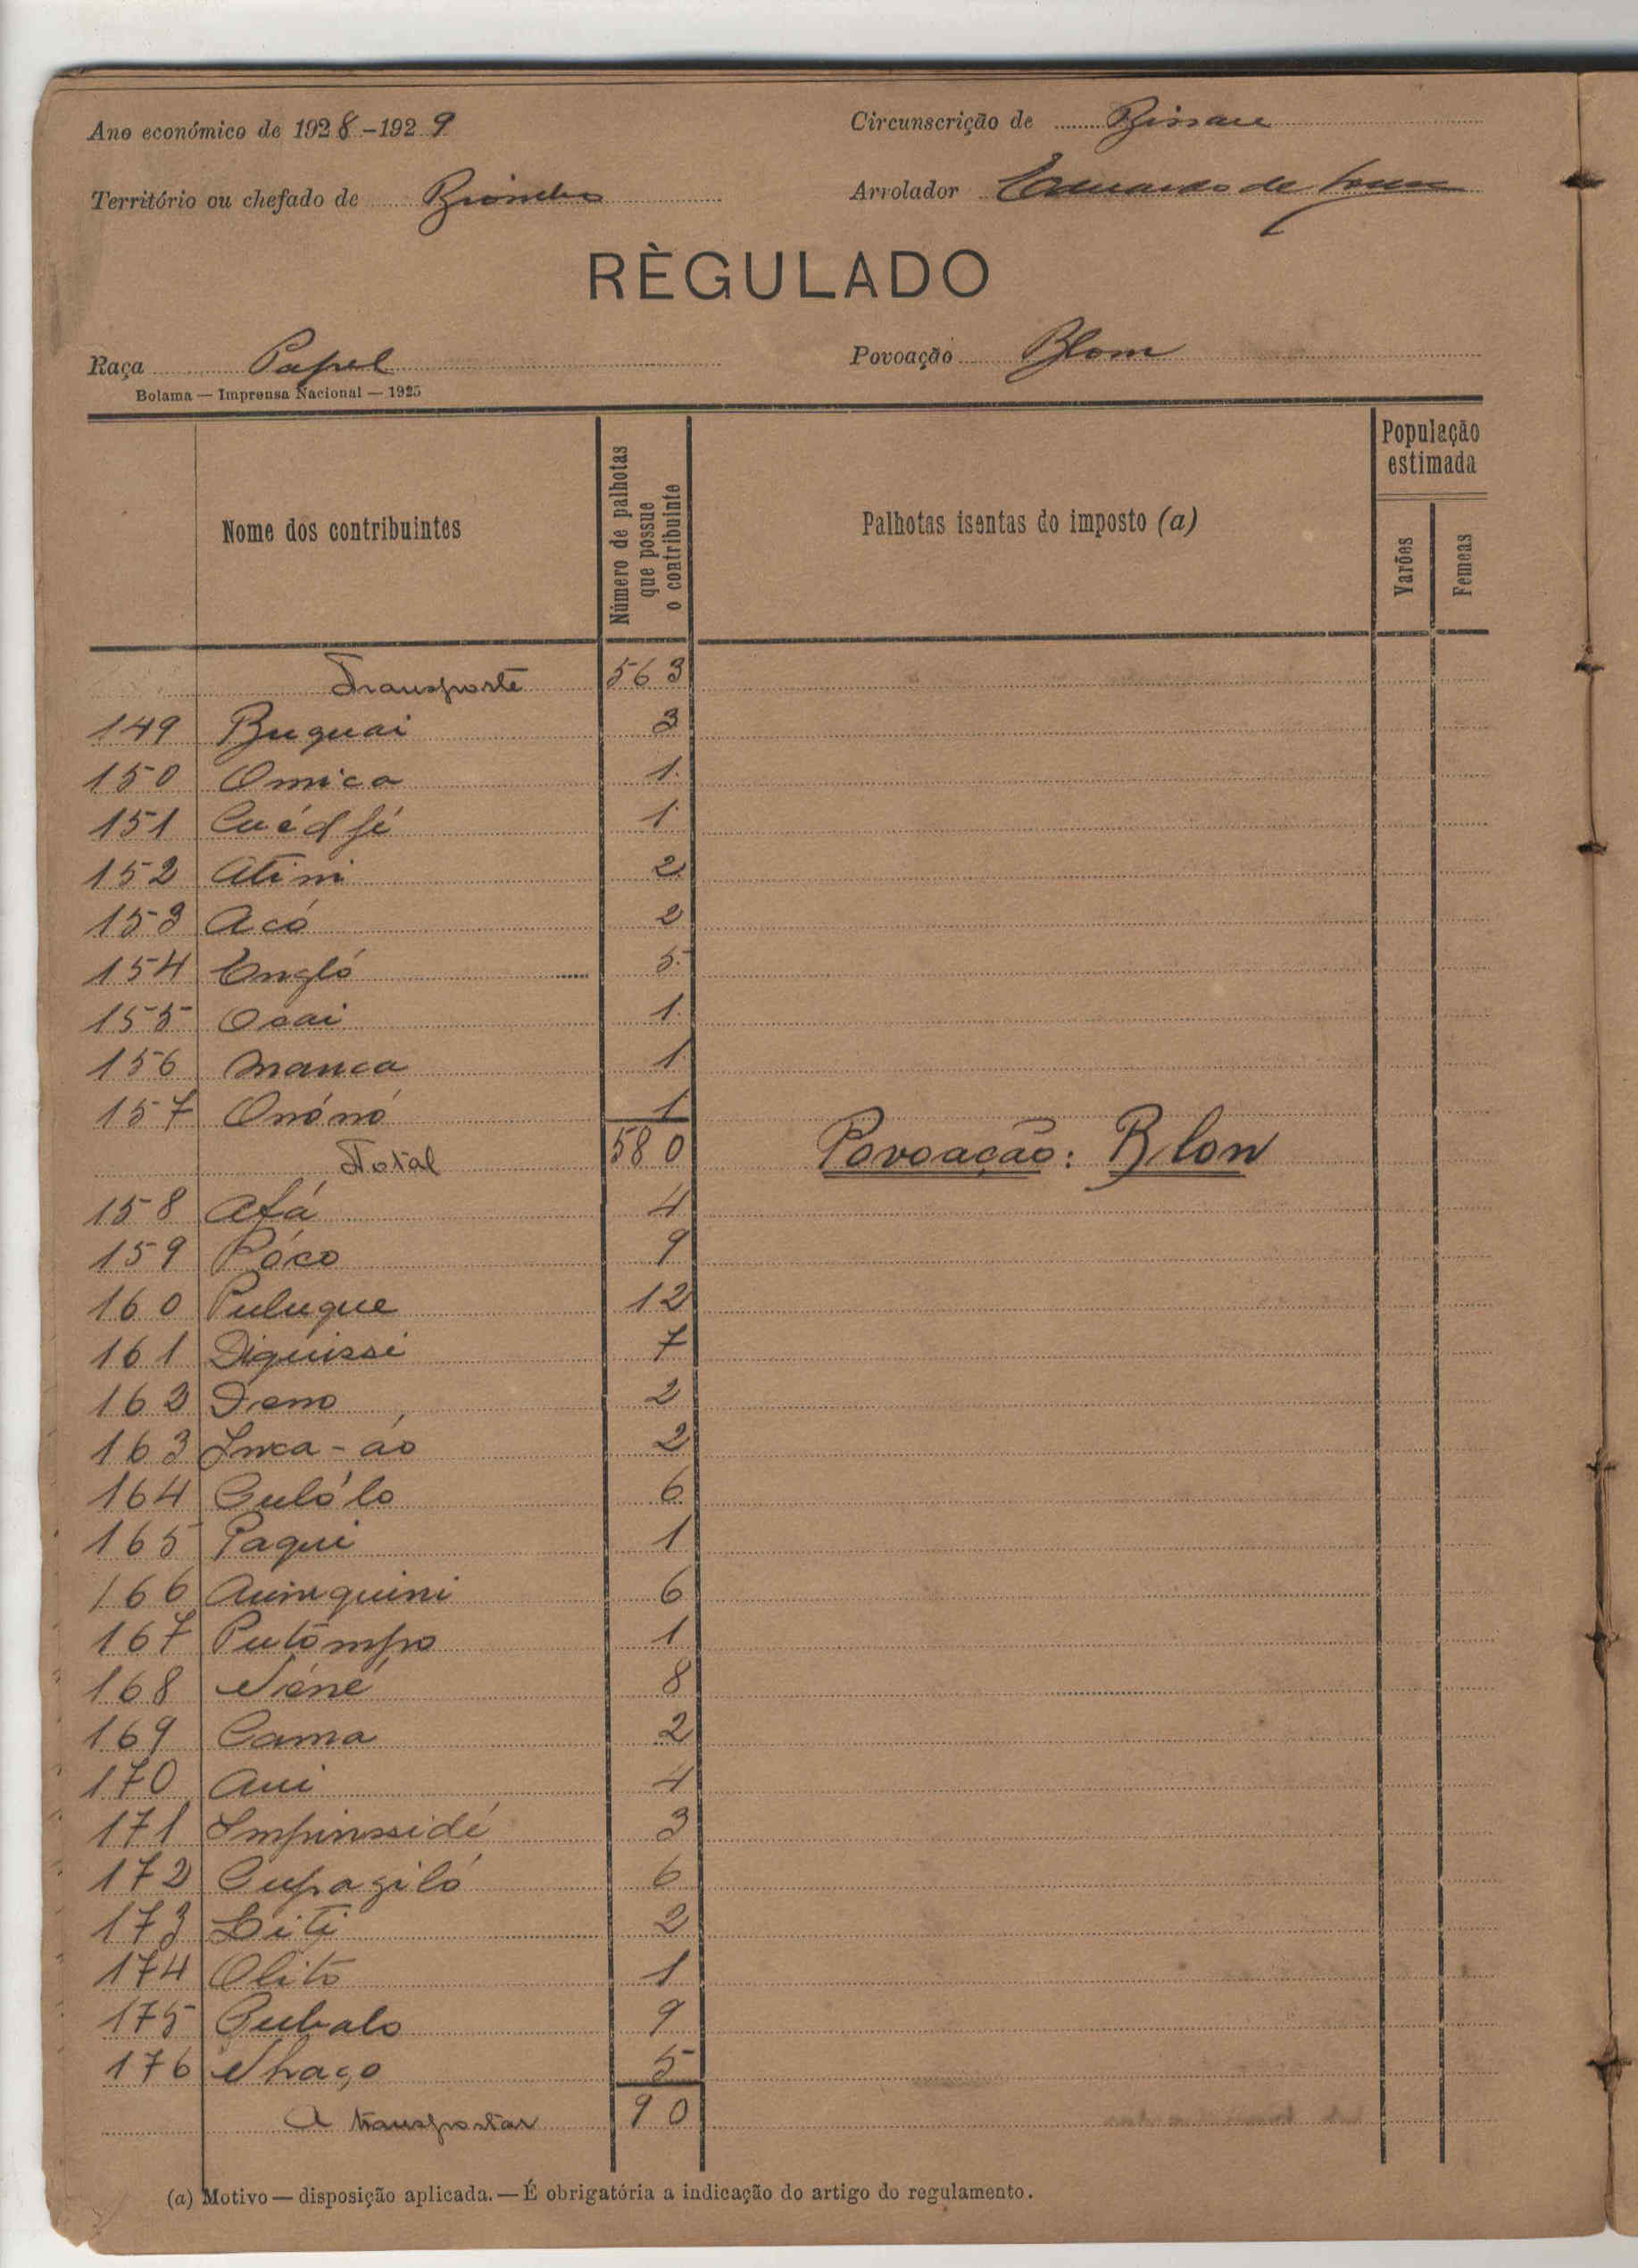 Ano económico de 1928-1929
Circunscrição de Bissau
Território ou chefado de Biombo
Arrolador Eduardo de
RÈGULADO
Raça Papel
Povoação Blom
Bolama — Imprensa Nacional — 1925
Nome dos contribuintes
Número de palhotas que possue o contribuinte
Palhotas isentas do imposto (a)
População estimada
Varões
Femeas
Transporte 563
149 Buguai 3
150 Omica 1
151 1
152 Atini 2
153 Acó 2
154 Engló 5
155 Ocai 1
156 Manca 1
157 Onónó 1
Total 580 Povoação: Blon
158 Afá 4
159 Póco 9
160 Puluque 12
161 Diquissi 7
162 2
163 Inca-áo 2
164 Culólo 6
165 Paqui 1
166 6
167 Putômpo 1
168 Néné 8
169 Cama 2
170 Aui 4
171 Impinssidé 3
172 Cupagiló 6
173 Liti 2
174 Olito 1
175 Cubalo 9
176 Nhaço 5
A transportar 90
(a) Motivo — disposição aplicada. — É obrigatória a indicação do artigo do regulamento.